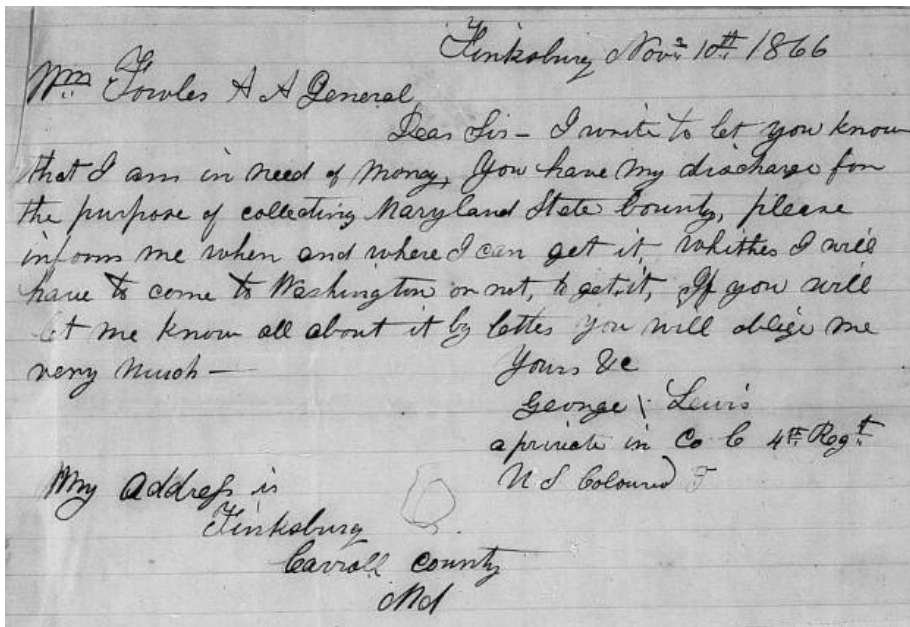 Finksburg Nov. 10th 1866
Wm Fowles A A General
Dear Sir – I write to let you know
that I am in need of money, You have my discharge for
the purpose of collecting Maryland State bounty, please
inform me when and where I can get it, whither I will
have to come to Washington or not, to get it, If you will
let me know all about it by letter you will oblige me
very much –
Yours &c
George Lewis
a private in Co C 4th Regt
U S Coloured T
My address is
Finksburg
Carroll County
Md